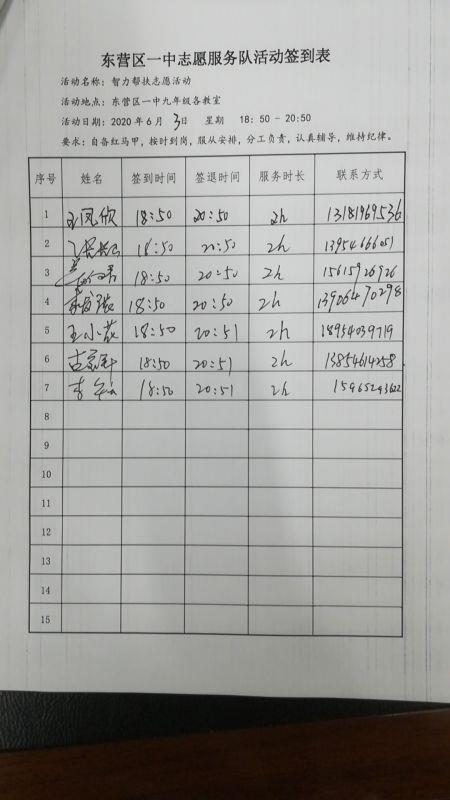 东营区一中志愿服务队活动签到表
活动名称：智力帮扶志愿活动
活动地点：东营区一中九年级各教室
活动日期：2020年6月3日 星期 18:50-20:50
要求：自备红马甲，按时到岗，服从安排，分工负责，认真辅导，维持纪律。
序号 姓名 签到时间 签退时间 服务时长 联系方式
1 王凤欣 18:50 20:50 2h 13181969536
2 18:50 20:50 2h 13954666051
3 18:50 20:50 2h 15615926926
4 18:50 20:50 2h 13906470298
5 王小花 18:50 20:51 2h 18954039719
6 18:50 20:51 2h 13854614258
7 18:50 20:51 2h 15965293622
8
9
10
11
12
13
14
15